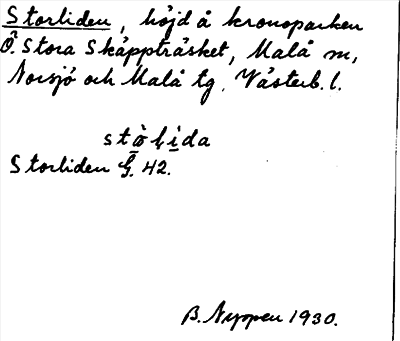 Storliden, höjd å kronoparken
Ö. Stora Skäppträsket, Malå m,
Norsjö och Malå tg. Västerb. l.
stò̱ḷi̱da
Storliden G. 42.
B. Nyppen 1930.